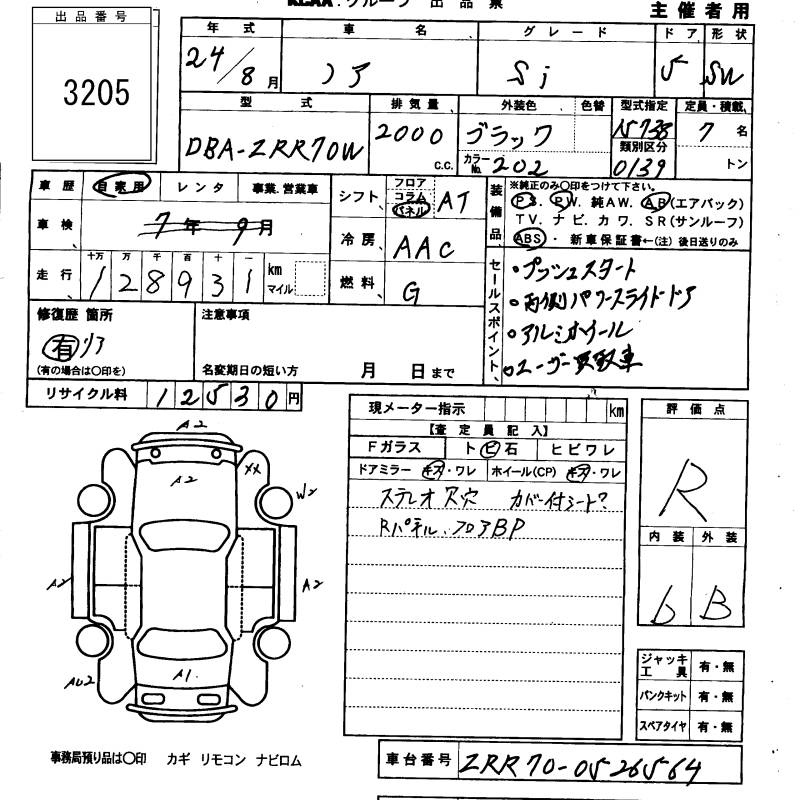 グループ 出 品 票
主催者用
出品番号
3205
年 式 車 名 グレード ドア 形 状
24/8月 ノア Si 5 SW
型 式 排 気 量 外装色 色替 型式指定 定員・積載
DBA-ZRR70W 2000 c.c. ブラック カラーNo. 202 15738 7 名
類別区分
0139 トン
車 歴 自家用 レンタ 事業.営業車
車 検 7年9月
走 行 十万 万 千 百 十 一 km マイル
128931
シフト フロア コラム パネル AT
冷 房 AAC
燃 料 G
装備品
※純正のみ〇印をつけて下さい。
P S. P W. 純AW. A B(エアバック)
TV. ナビ. カ ワ. SR(サンルーフ)
ABS ・ 新車保証書←(注) 後日送りのみ
セールスポイント
・プッシュスタート
・両側パワースライドドア
・アルミホイール
・ユーザー買取車
修復歴 箇所
有 リア
(有の場合は〇印を)
注意事項
名変期日の短い方 月 日まで
リサイクル料 12530円
現メーター指示 km
【査 定 員 記 入】
Fガラス ト ビ 石 ヒビワレ
ドアミラー キズ・ワレ ホイール(CP) キズ・ワレ
ステレオ穴 カバー付シート?
Rパネル.フロアBP
評 価 点
R
内 装 外 装
b B
A2
A2
XX
W2
A2
A2
AU2
A1.
ジャッキ工具 有・無
パンクキット 有・無
スペアタイヤ 有・無
事務局預り品は〇印 カギ リモコン ナビロム
車台番号 ZRR70-0526564